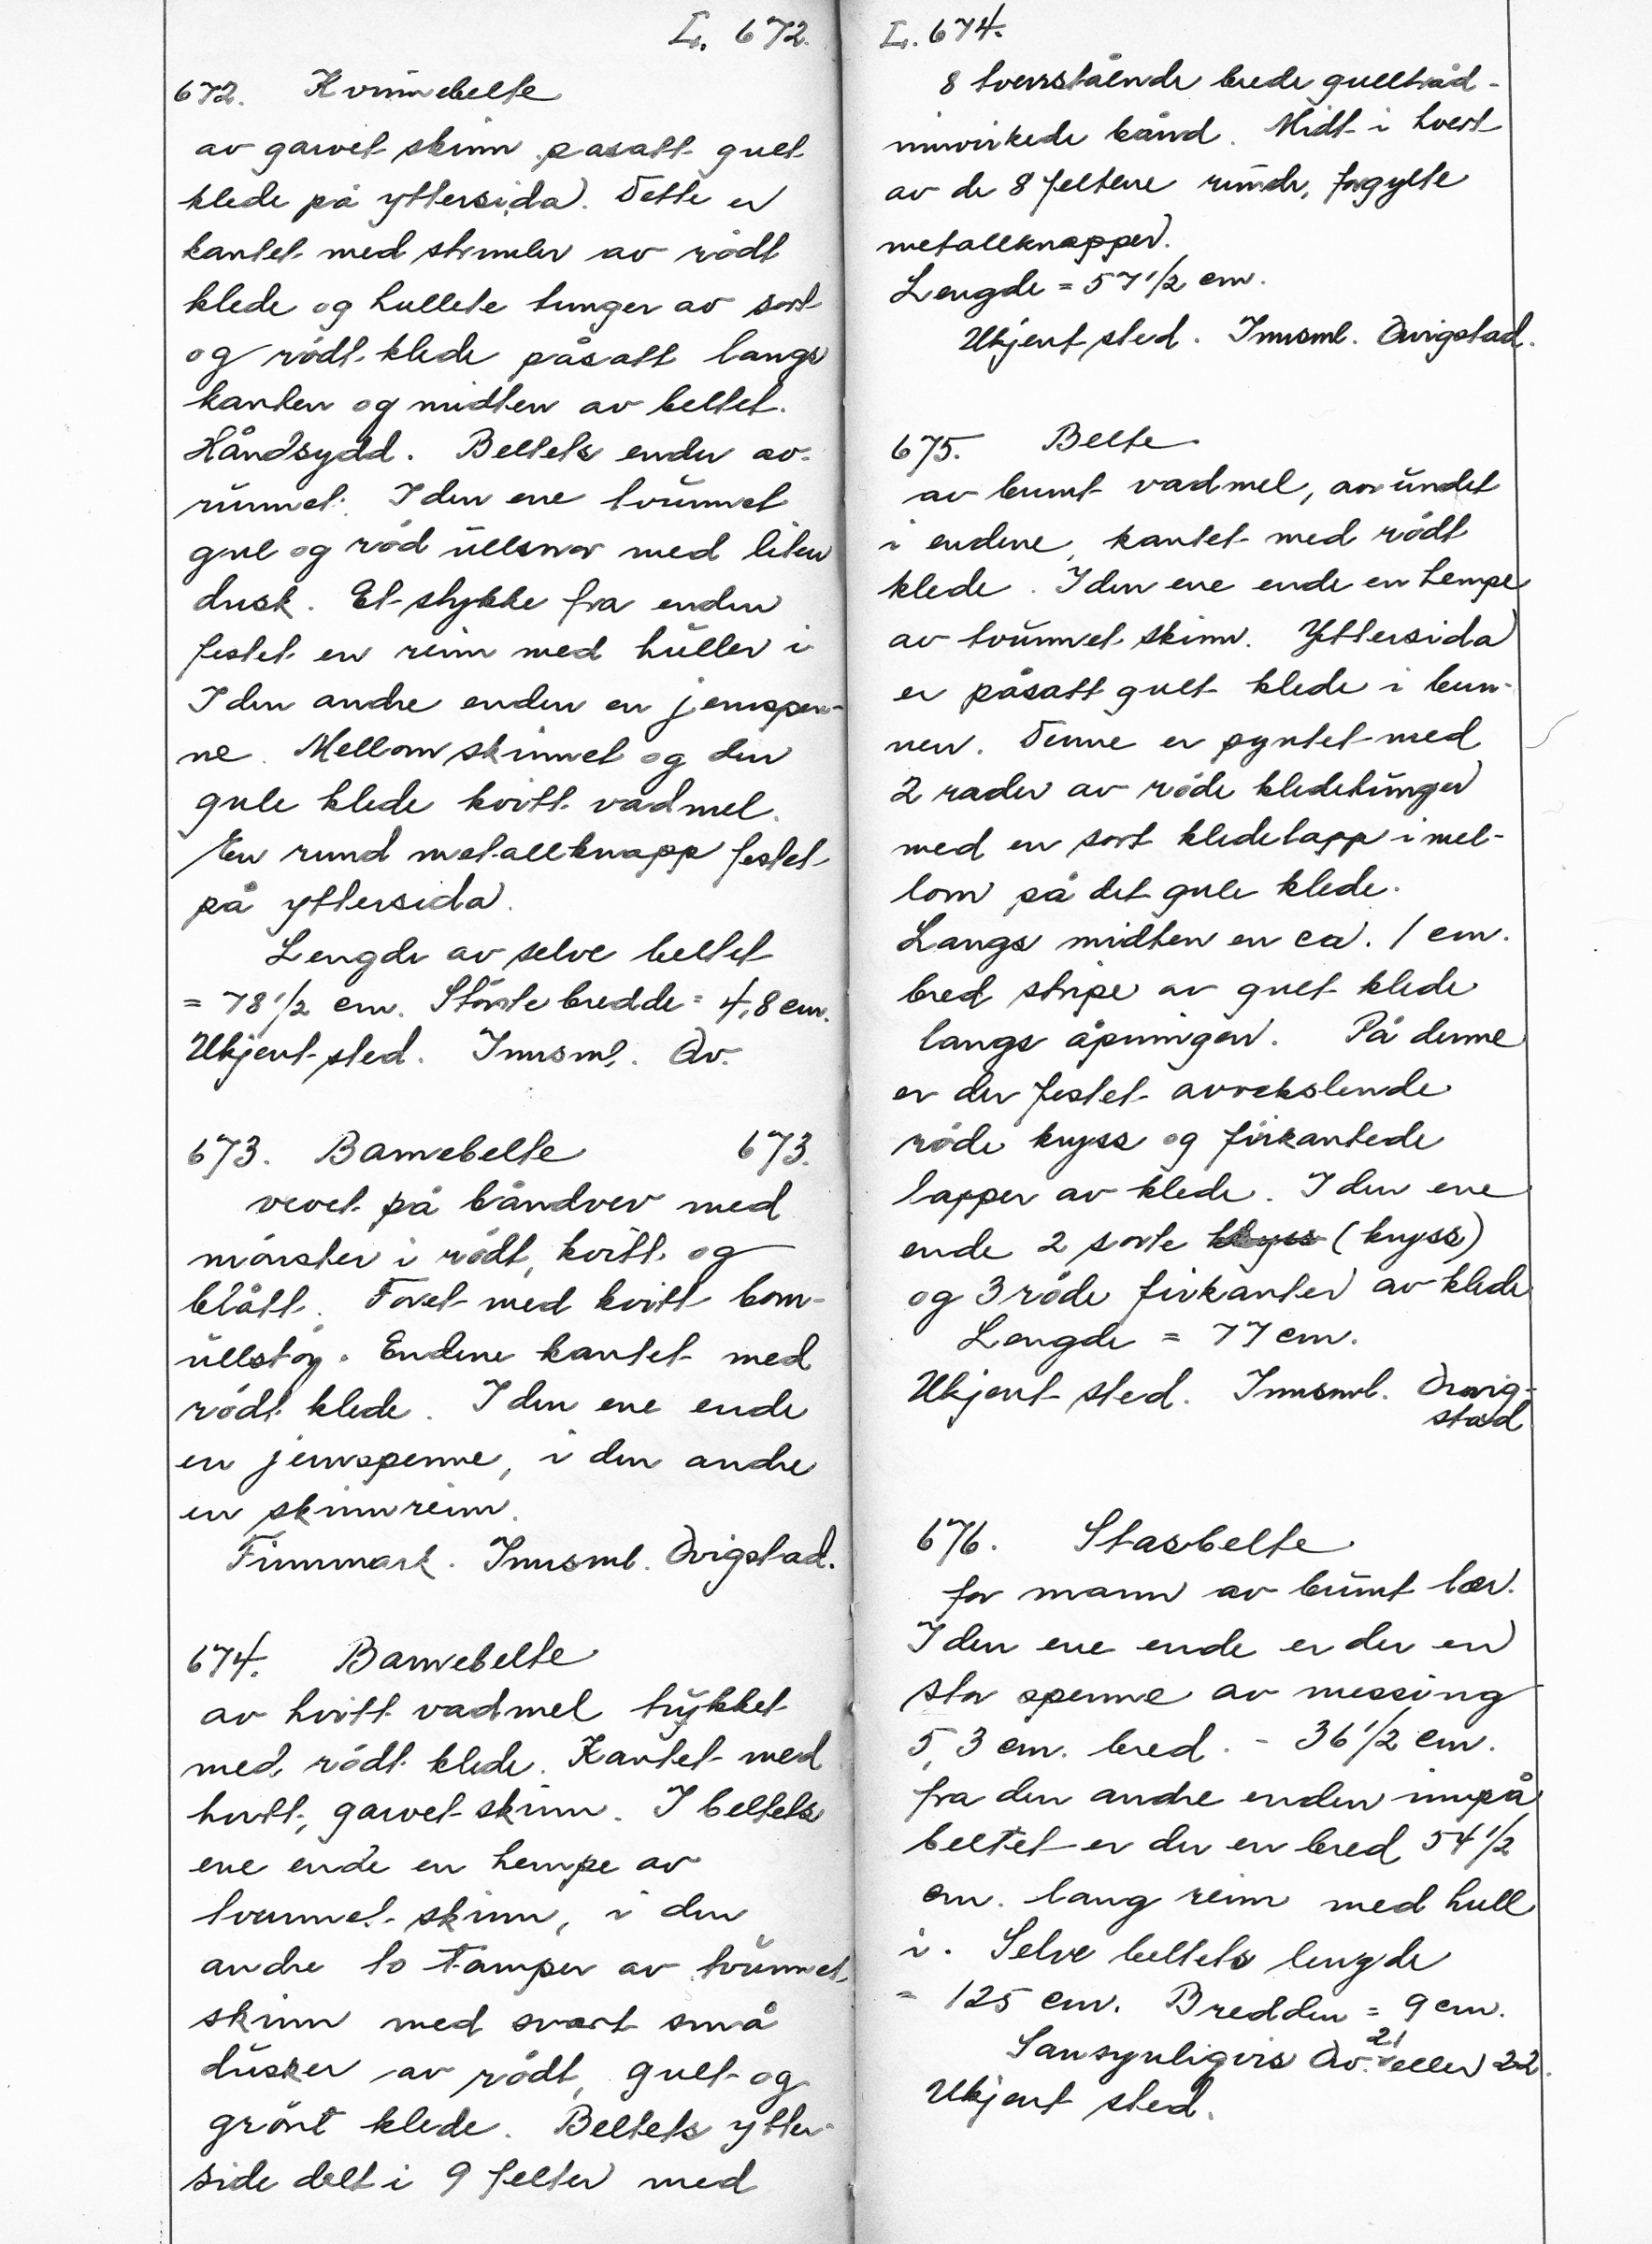 L. 672.
672. Kvinnebelte
av garvet skinn påsatt gult
klede på yttersida. Dette er
kantet med strimler av rödt
klede og hullete tunger av sort
og rödt klede påsatt langs
kanten og midten av beltet.
Håndsydd. Beltets ender av-
runnet. I den ene tvunnet
gul og röd ullsnor med liten
dusk. Et stykke fra enden
festet en reim med huller i
I den andre enden en jernspen-
ne. Mellom skinnet og den
gule klede kvitt vadmel.
En rund metallknapp festet
på yttersida.
Lengde av selve beltet
= 78 1/2 cm. Störste bredde = 4,8 cm.
Ukjent sted. Innsml. Qv.
673. Barnebelte 673.
vevet på båndvev med
mönster i rödt, kvitt og
blått. Foret med kvitt bom-
ullstöy. Endene kantet med
rödt klede. I den ene ende
en jernspenne, i den andre
en skinnreim.
Finnmark. Innsml. Qvigstad.
674. Barnebelte
av hvitt vadmel trykket
med rödt klede. Kantet med
hvitt, garvet skinn. I beltets
ene ende en hempe av
tvunnet skinn, i den
andre to tamper av tvunnet
skinn med svart små
dusker av rödt, gult og
grönt klede. Beltets ytter-
side delt i 9 felter med
L. 674.
8 tverrstående brede gulltråd-
innvirkede bånd. Midt i hvert
av de 8 feltene runde, forgylte
metallknapper.
Lengde = 57 1/2 cm.
Ukjent sted. Innsml. Qvigstad.
675. Belte
av brunt vadmel, avrundet
i endene, kantet med rödt
klede. I den ene ende en hempe
av tvunnet skinn. Yttersida
er påsatt gult klede i bun-
nen. Denne er pyntet med
2 rader av röde kledetunger
med en sort kledelapp i mel-
lom på det gule klede.
Langs midten en ca. 1 cm.
bred stripe av gult klede
langs åpningen. På denne
er der festet avvekslende
röde kryss og firkantede
lapper av klede. I den ene
ende 2 sorte kryss (kryss)
og 3 röde firkanter av klede
Lengde = 77 cm.
Ukjent sted. Innsml. Qvig-
stad
676. Stasbelte
for mann av brunt lær.
I den ene ende er der en
stor spenne av messing
5,3 cm. bred. - 36 1/2 cm.
fra den andre enden innpå
beltet er der en bred 54 1/2
cm. lang reim med hull
i. Selve beltets lengde
= 125 cm. Bredden = 9 cm.
Sansynligvis Qv. 21 eller 22.
Ukjent sted.